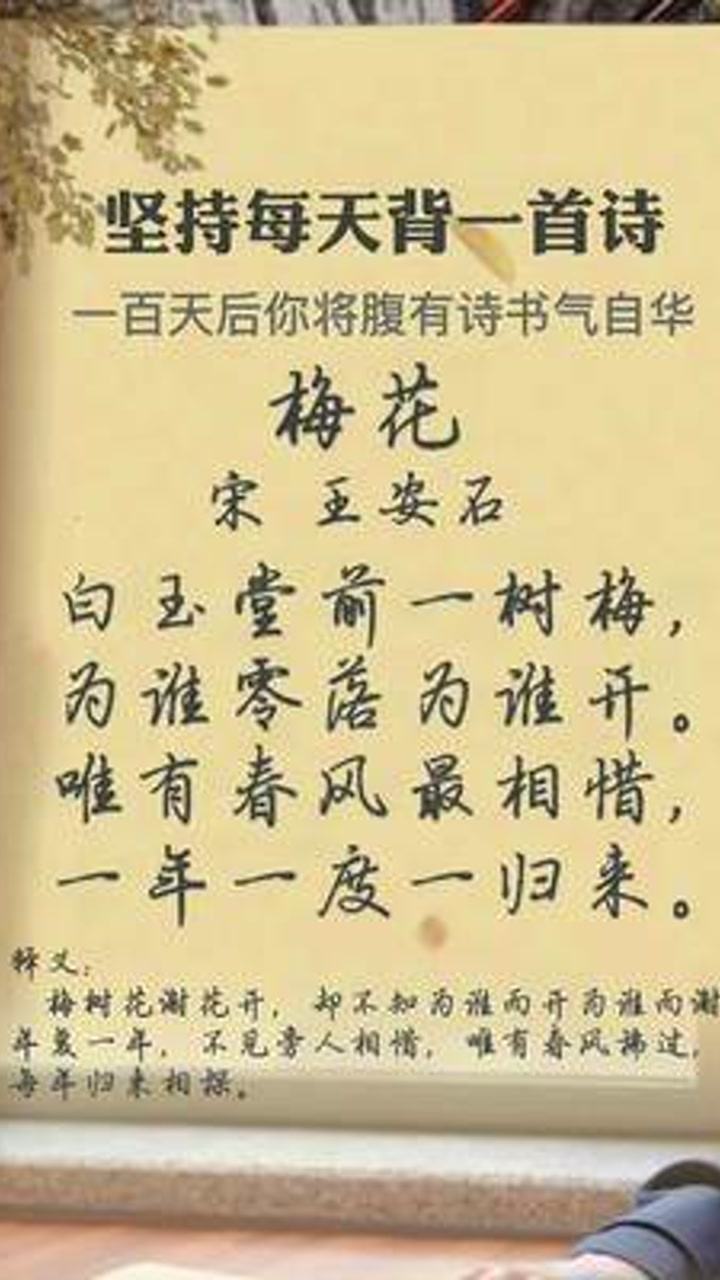 坚持每天背一首诗
一百天后你将腹有诗书气自华
梅花
宋 王安石
白玉堂前一树梅，
为谁零落为谁开。
唯有春风最相惜，
一年一度一归来。
释义：
梅树花谢花开，却不知为谁而开为谁而谢
年复一年，不见旁人相惜，唯有春风拂过，
每年归来相探。